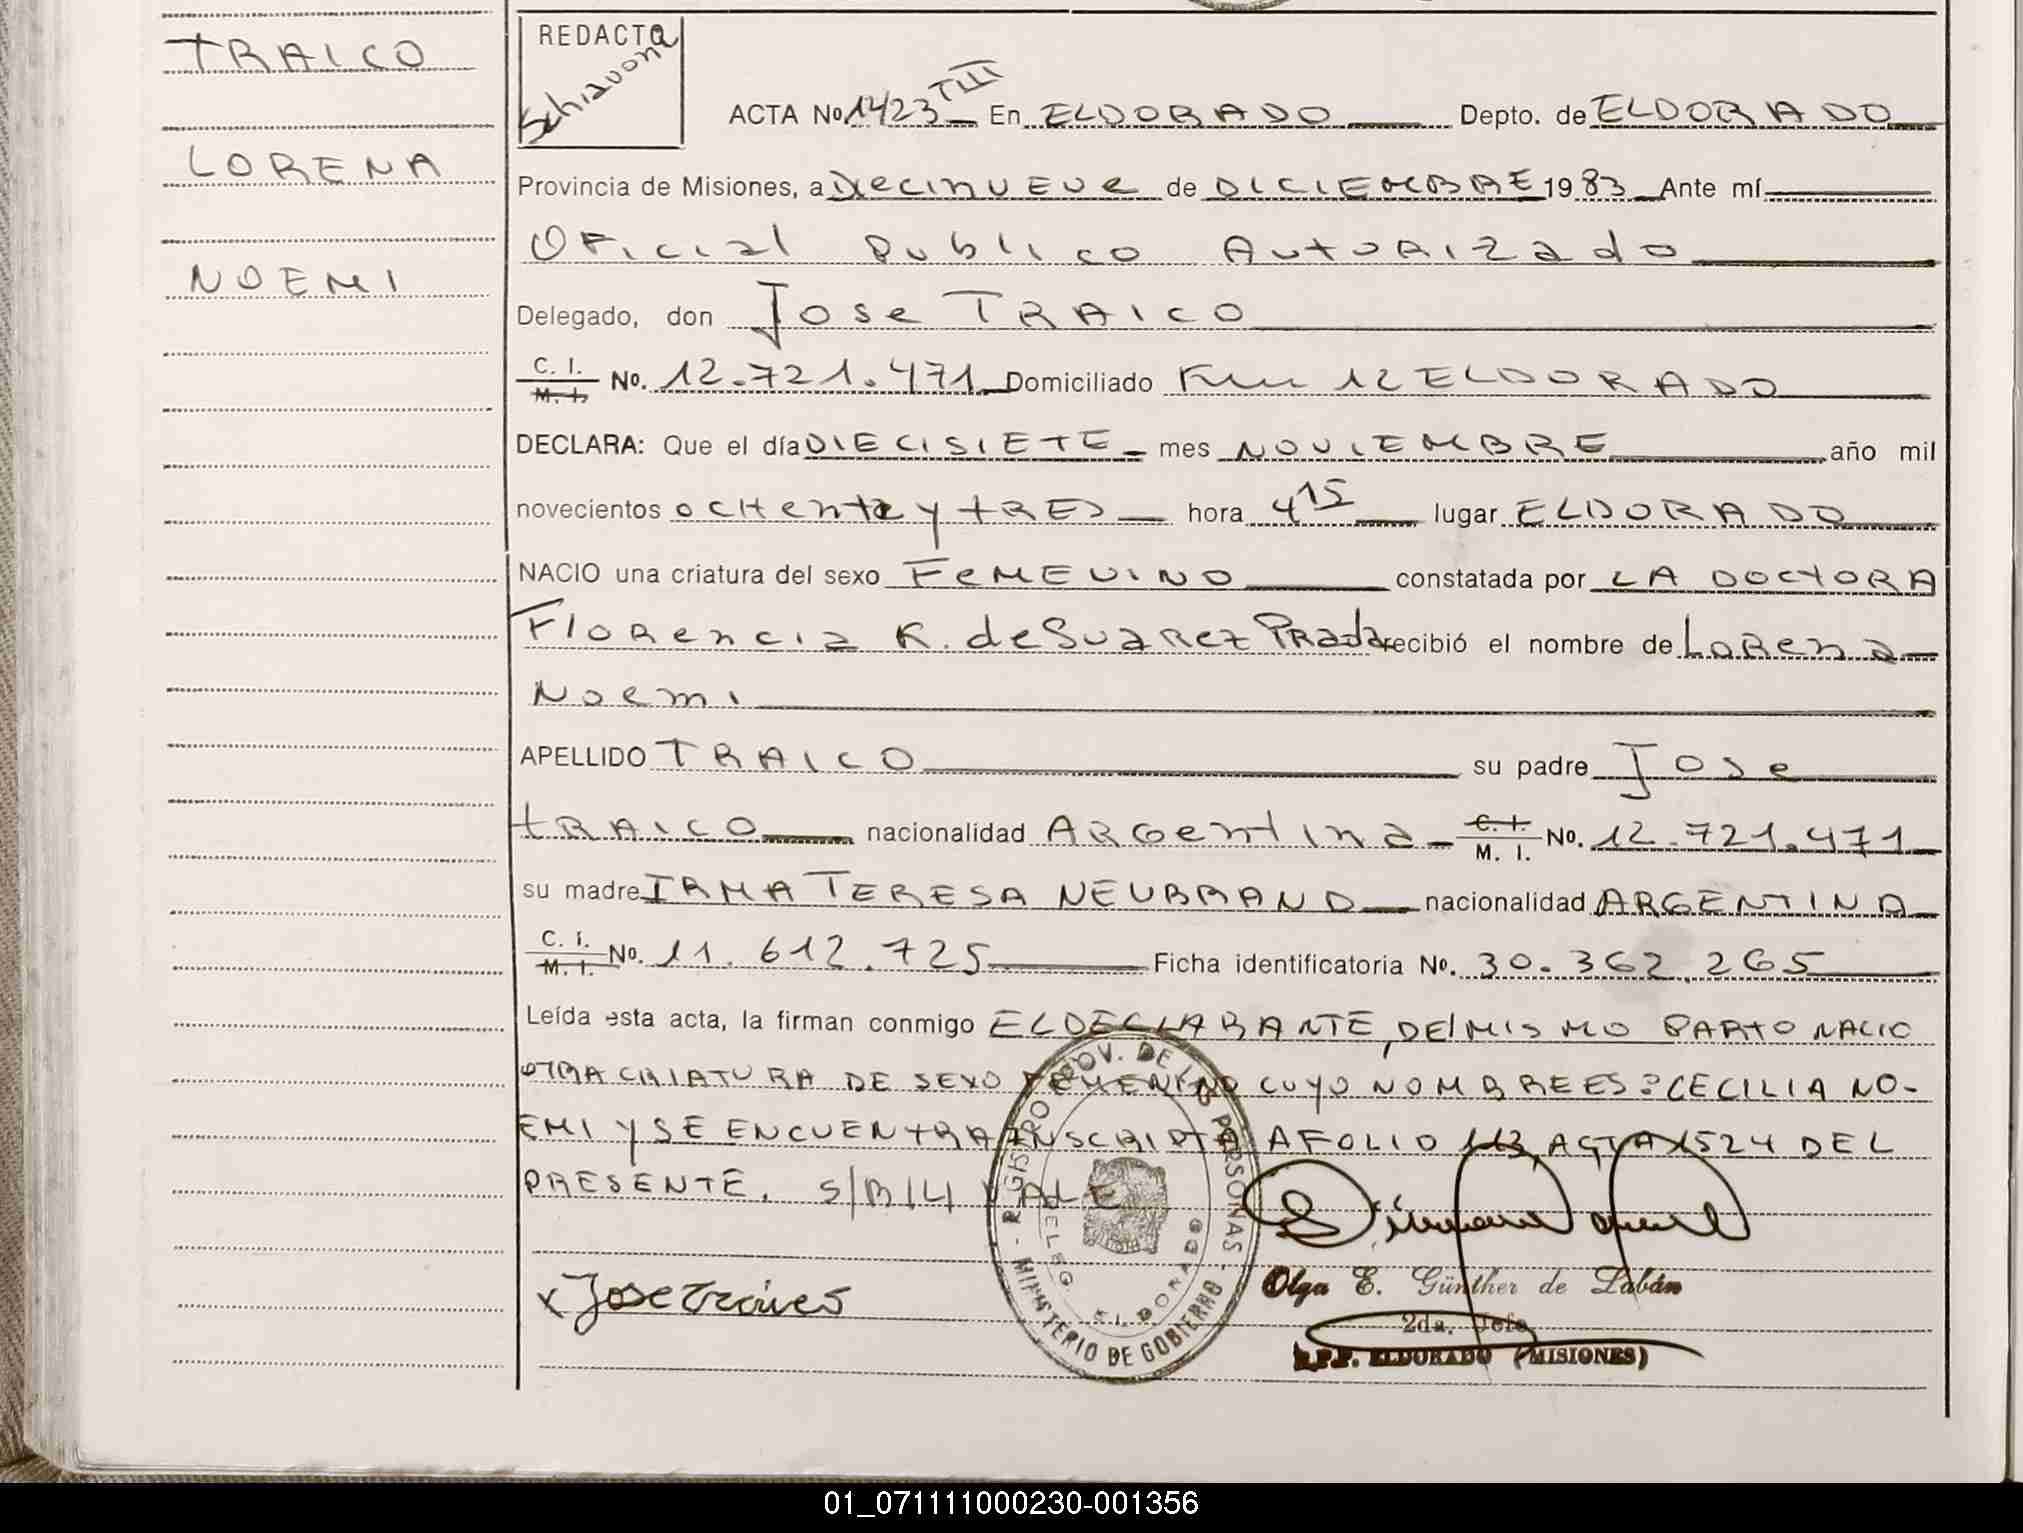 TRAICO
LORENA
NOEMI
REDACTO
Schiavoni
ACTA No. 1423 TIII En ELDORADO Depto. de ELDORADO
Provincia de Misiones, a Diecinueve de DICIEMBRE 1983 Ante mí
Oficial Publico Autorizado
Delegado, don Jose TRAICO
C. I. M. I. No. 12.721.471 Domiciliado Km 12 ELDORADO
DECLARA: Que el día DIECISIETE mes NOVIEMBRE año mil
novecientos OCHenta y tRES hora 4 15 lugar ELDORADO
NACIO una criatura del sexo FEMENINO constatada por LA DOCTORA
Florencia K. de Suarez Prada recibió el nombre de Lorena
Noemi
APELLIDO TRAICO su padre Jose
tRAICO nacionalidad ARGentina C. I. M. I. No. 12.721.471
su madre IRMA TERESA NEUBRAND nacionalidad ARGENTINA
C. I. M. I. No. 11.612.725 Ficha identificatoria No. 30.362.265
Leída esta acta, la firman conmigo EL DECLARANTE, DEL MISMO PARTO NACIO
OTRA CRIATURA DE SEXO FEMENINO CUYO NOMBRE ES: CECILIA NO-
EMI Y SE ENCUENTRA INSCRIPTA A FOLIO 113, ACTA 1524 DEL
PRESENTE. S/R 14 VALE
REGISTRO PROV. DE LAS PERSONAS - MINISTERIO DE GOBIERNO -
DELEG. ELDORADO
x Jose
Olga E. Günther de Labán
2da. Jefe
R.P.P. ELDORADO (MISIONES)
01_071111000230-001356